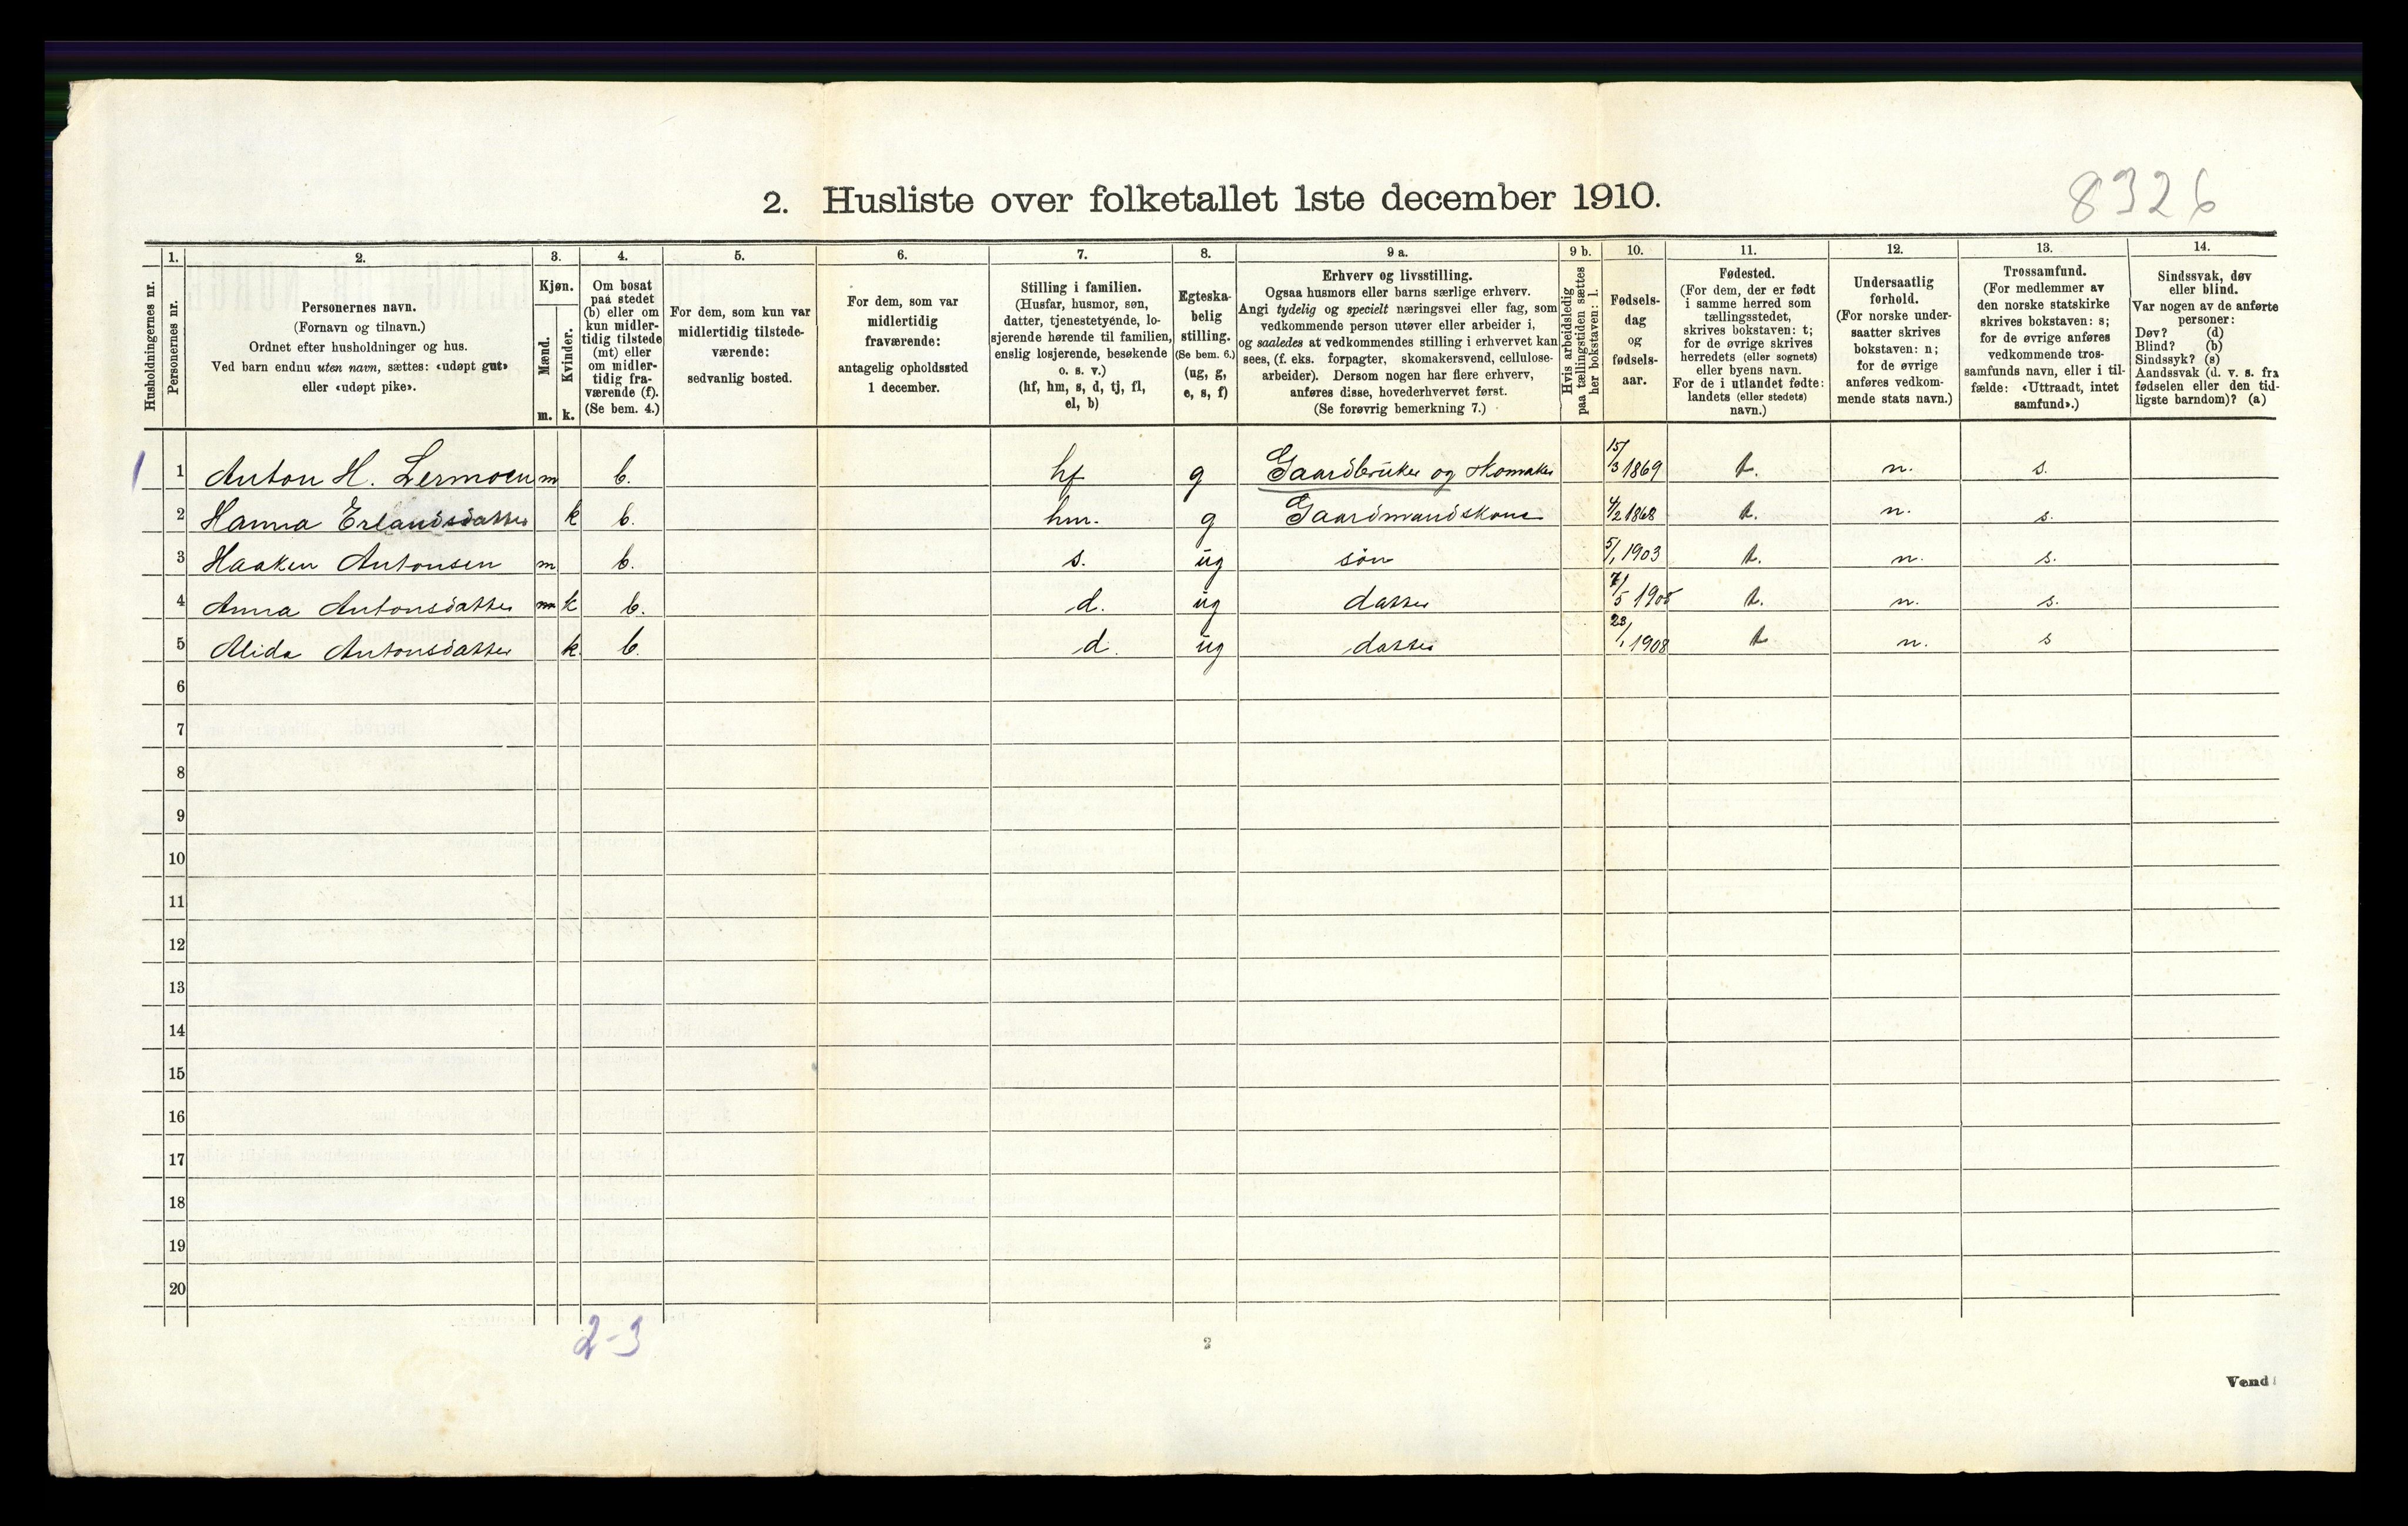 8326
2. Husliste over folketallet 1ste december 1910.
Husholdningernes nr.
1.
Personernes nr.
2.
Personernes navn.
(Fornavn og tilnavn.)
Ordnet efter husholdninger og hus.
Ved barn endnu uten navn, sættes: «udøpt gut»
eller «udøpt pike».
3.
Kjøn.
Mænd.
m.
Kvinder.
k.
4.
Om bosat
paa stedet
(b) eller om
kun midler-
tidig tilstede
(mt) eller
om midler-
tidig fra-
værende (f).
(Se bem. 4.)
5.
For dem, som kun var
midlertidig tilstede-
værende:
sedvanlig bosted.
6.
For dem, som var
midlertidig
fraværende:
antagelig opholdssted
1 december.
7.
Stilling i familien.
(Husfar, husmor, søn,
datter, tjenestetyende, lo-
sjerende hørende til familien,
enslig losjerende, besøkende
o. s. v.)
(hf, hm, s, d, tj, fl,
el, b)
8.
Egteska-
belig
stilling.
(Se bem. 6.)
(ug, g,
e, s, f)
9 a.
Erhverv og livsstilling.
Ogsaa husmors eller barns særlige erhverv.
Angi tydelig og specielt næringsvei eller fag, som
vedkommende person utøver eller arbeider i,
og saaledes at vedkommendes stilling i erhvervet kan
sees, (f. eks. forpagter, skomakersvend, cellulose-
arbeider). Dersom nogen har flere erhverv,
anføres disse, hovederhvervet først.
(Se forøvrig bemerkning 7.)
9 b.
Hvis arbeidsledig
paa tællingstiden sættes
her bokstaven: l.
10.
Fødsels-
dag
og
fødsels-
aar.
11.
Fødested.
(For dem, der er født
i samme herred som
tællingsstedet,
skrives bokstaven: t;
for de øvrige skrives
herredets (eller sognets)
eller byens navn.
For de i utlandet fødte:
landets (eller stedets)
navn.)
12.
Undersaatlig
forhold.
(For norske under-
saatter skrives
bokstaven: n;
for de øvrige
anføres vedkom-
mende stats navn.)
13.
Trossamfund.
(For medlemmer av
den norske statskirke
skrives bokstaven: s;
for de øvrige anføres
vedkommende tros-
samfunds navn, eller i til-
fælde: «Uttraadt, intet
samfund».)
14.
Sindssvak, døv
eller blind.
Var nogen av de anførte
personer:
Døv? (d)
Blind? (b)
Sindssyk? (s)
Aandssvak (d. v. s. fra
fødselen eller den tid-
ligste barndom)? (a)
1 1 Anton H. Lermoen m b. hf g Gaardbruker og Skomaker 15/3 1869 t. n. s.
2 Hanna Erlandsdatter k b. hm. g Gaardmandskone 4/2 1868 t. n. s.
3 Haaken Antonsen m b. s. ug søn 5/1 1903 t. n. s.
4 Anna Antonsdatter m k b. d. ug datter 7/5 1905 t. n. s.
5 Alida Antonsdatter k b. d. ug datter 23/1 1908 t n. s
6
7
8
9
10
11
12
13
14
15
16
17
18
19
20
2-3
2
Vend!